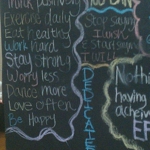 Think positively
Exercise daily
Eat healthy
Work hard
Stay strong
Worry less
Dance more
Love often
Be Happy
YOU CAN
Stop saying
I wish
& Start saying
I will
DEDICATE
Nothi
having
acheiv
EF